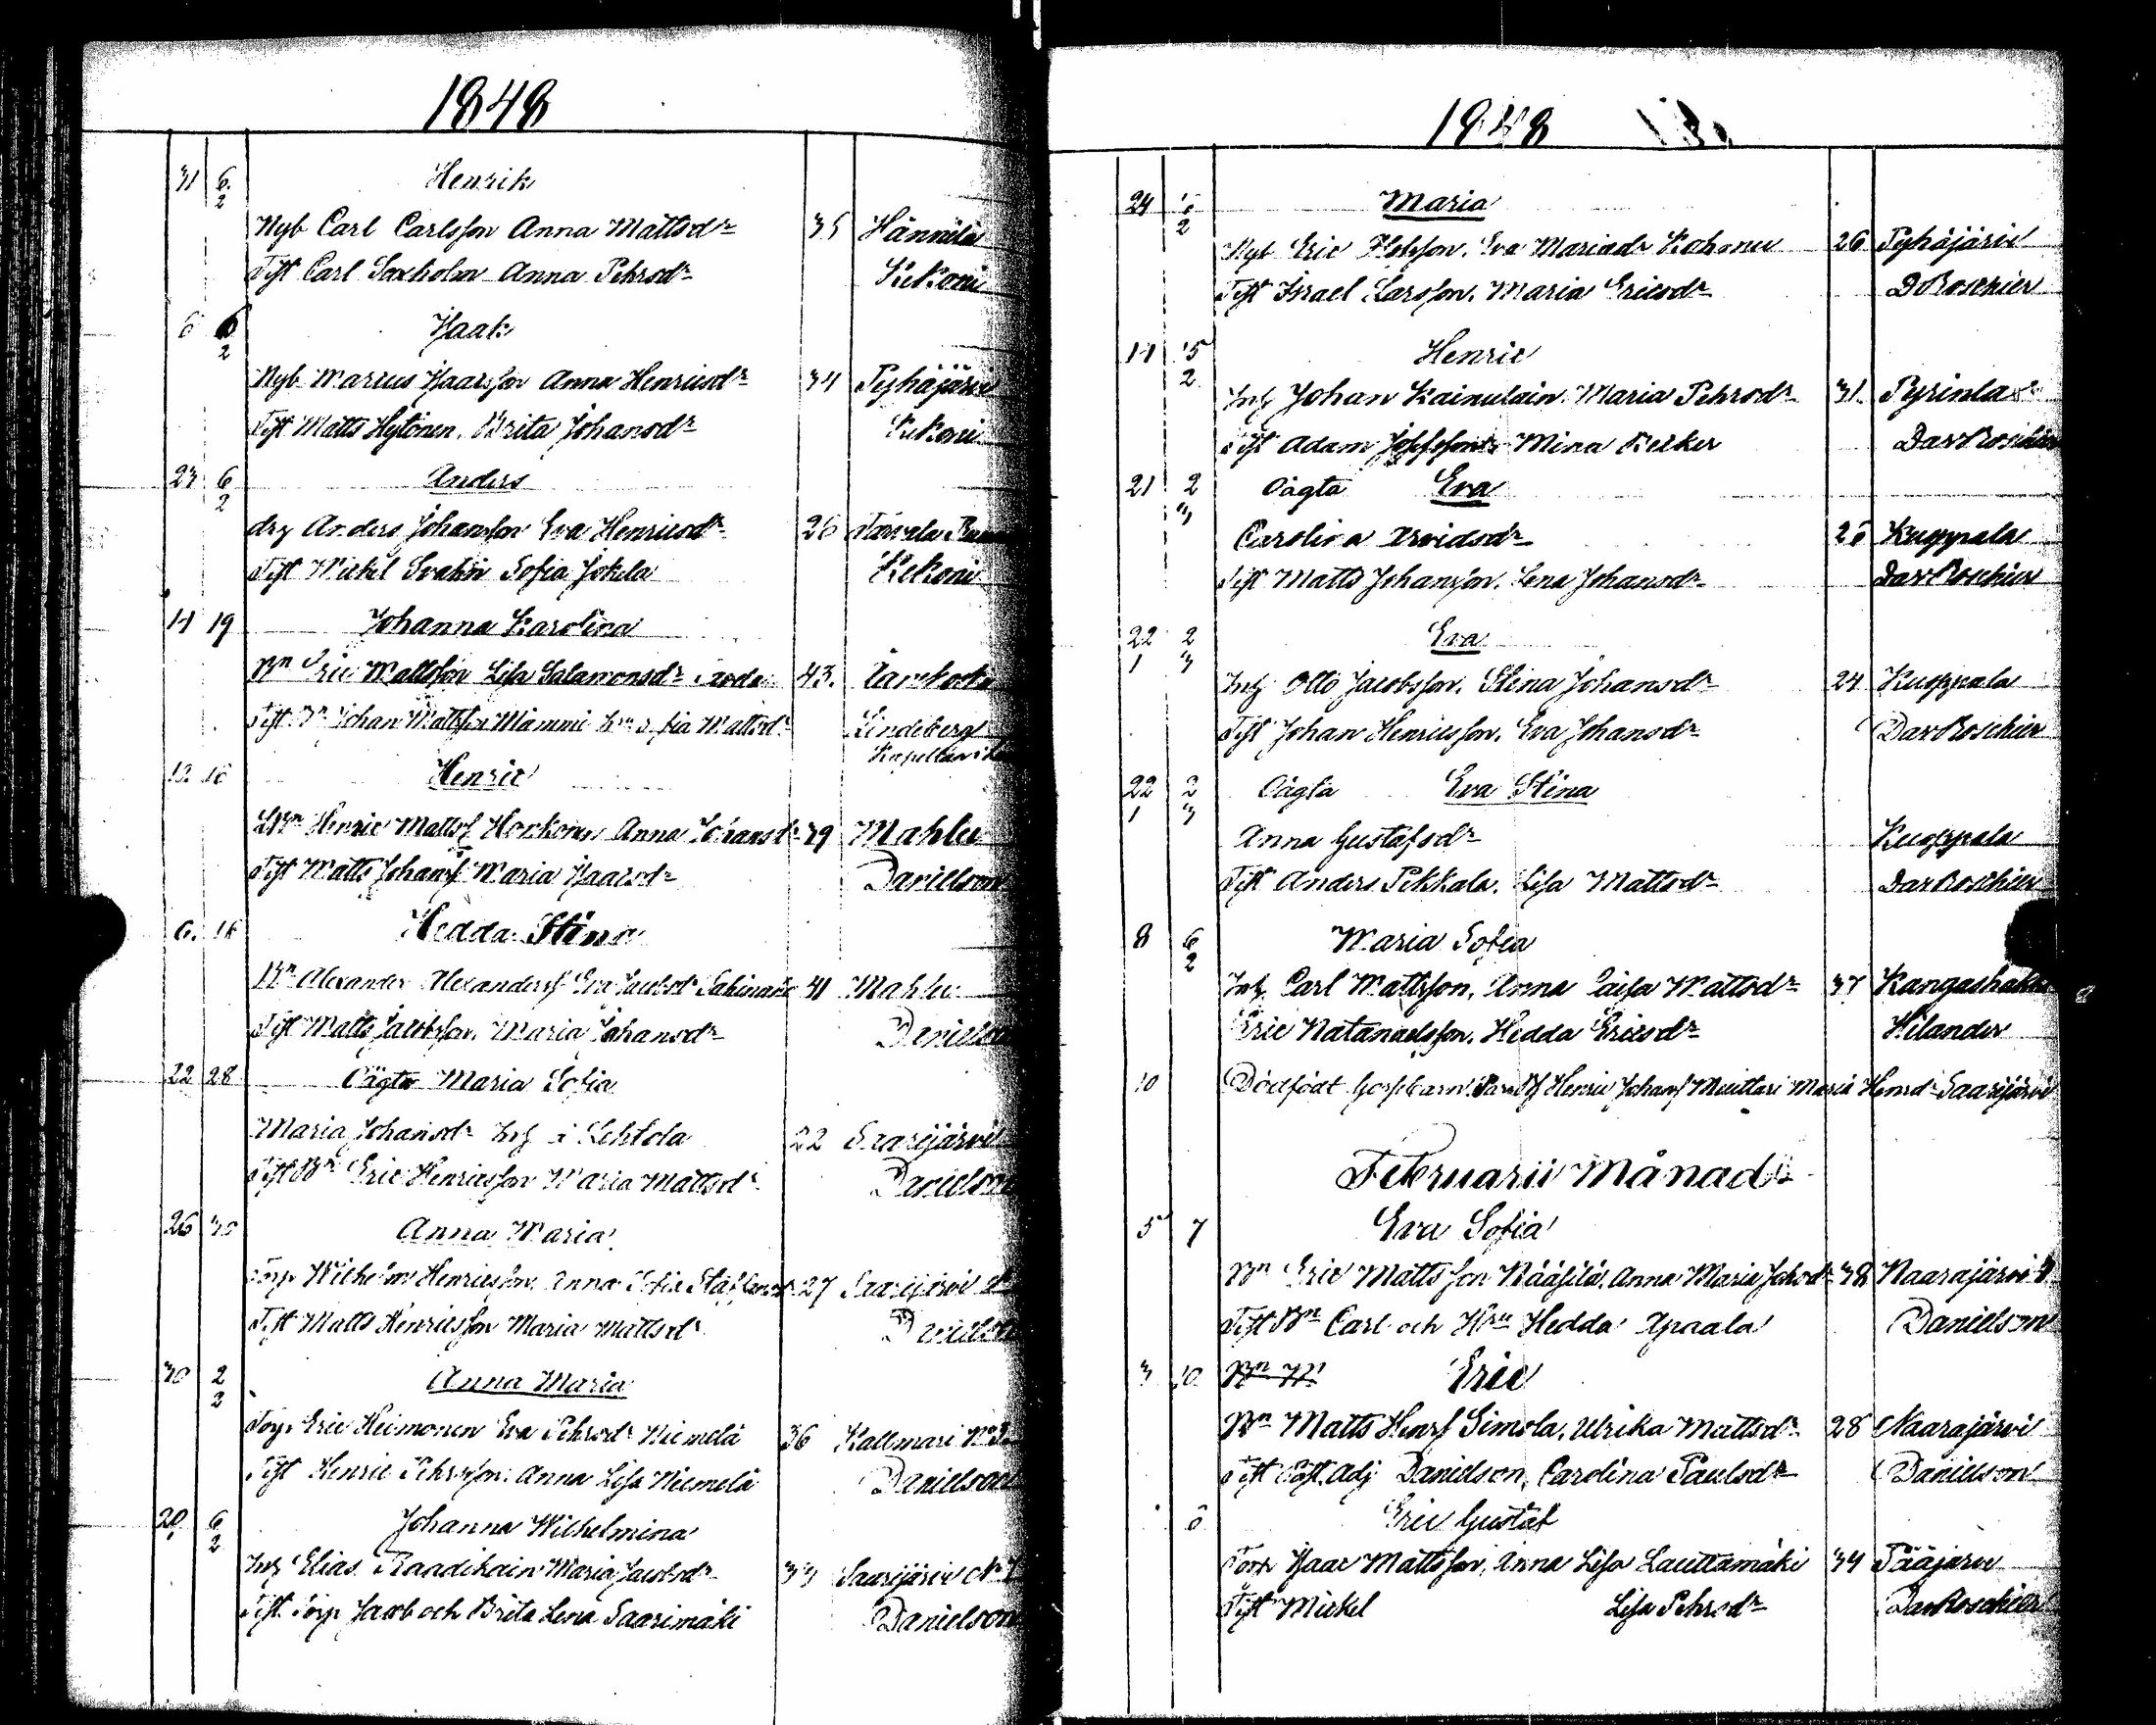 1848
31 6 Henrik
2
Nyb Carl Carlsson Anna Mattsdr 35 Hännilä
Test Carl Saxholm Anna Pehrsdr Kekoni
6 6 Isaak
2
Nyb Marcus Isacsson Anna Henricsdr 34 Pyhäjärvi
Test Matts Hytönen, Brita Johansdr Kekoni
23 6 Anders
2
drg Anders Johansson Eva Henricsdr 26
Test Mickel Svahn Sofia Jokela Kekoni
14 19 Johanna Karolina
Bn Eric Mattsson Lisa Salamonsdr 43.
Test Bn Johan Mattsson Mämmi Sofia Mattsdr Lindeberg
Kapellan i
12 16 Henric
Henric Matts Johansdr 39 Mahlu
Test Matts Johans Maria Isacsdr Danielson
6. 16 Hedda Stina
Bn Alexander Alexanders Eva Jacobsdr 41 Mahlu
Test Matts Jacobsson, Maria Johansdr Danielson
22 28 Oägta Maria Sofia
Maria Johansdr Inh i Lehtola 22 Saarijärvi
Test Bn Eric Henricsson Maria Mattsdr Danielson
26 30 Anna Maria
Torp Wilhelm Henricsson, Anna Sofia 27 Saarijärvi
Test Matts Henricsson Maria Mattsdr Danielson
30 2 Anna Maria
2
Torp Eric Heimonen Eva Pehrsdr Niemelä 36 Kallmari
Test Henric Pehrsson. Anna Lisa Niemelä Danielson
20 6 Johanna Wilhelmina
2
Inh Elias Raadikain Maria Jacobsdr 33 Saarijärvi
Test Torp Jacob och Brita Lena Saarimäki Danielson
1848
24 Maria
2
Nyb Eric Eva Mariadr Kohonen 26 Pyhäjärvi
Test Israel Larsson. Maria Ericsdr D Roschier
14 15 Henric
2
Inh Johan Kainulain. Maria Pehrsdr 31 Pyrinla
Test Adam Mina Kecker Dav Roschier
21 2 Oägta Eva
3
Carolina Arvidsdr 26 Kuoppala
Test Matts Johansson. Lena Johansdr Dav Roschier
22 2 Eva
1 3
Inh Otto Jacobsson. Stina Johansdr 24 Kuoppala
Test Johan Henricsson. Eva Johansdr Dav Roschier
22 2 Oägta Eva Stina
1 3
Anna Gustafsdr Kuoppala
Test Anders Pekkala. Lisa Mattsdr Dav Roschier
8 6 Maria Sofia
2
Inh Carl Mattsson, Anna Caisa Mattsdr 37 Kangashäkki
Eric Natanaelsson. Hedda Ericsdr Hilander
10 Dödfödt Henric Johans Maria Henrsdr Saarijärvi
Februarii Månad
5 7 Eva Sofia
Bn Eric Mattsson Rääsilä, Anna Maria Jakobsdr 38 Naarajärvi
Test Bn Carl och Hru Hedda Apaala Danielson
3 10 Bn H Eric
Bn Matts Henrs Simola, Ulrika Mattsdr 28 Naarajärvi
Test Past. Adj Danielson, Carolina Paulsdr Danielson
6 Eric Gustaf
Torp Isaac Mattsson, Anna Lisa Lauttamäki 34 Pääjärvi
Test Mickel Lisa Pehrsdr Dav Roschier